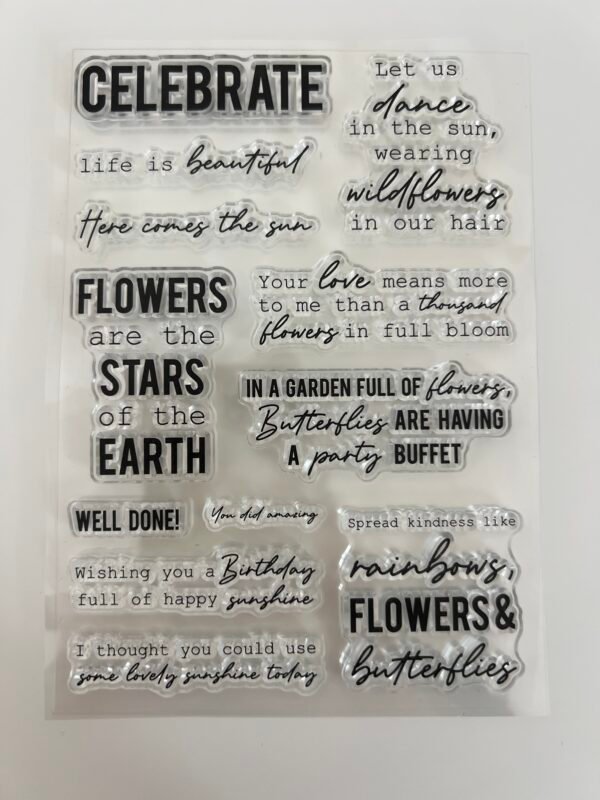 CELEBRATE
life is beautiful
Here comes the sun
Let us
dance
in the sun,
wearing
wildflowers
in our hair
FLOWERS
are the
STARS
of the
EARTH
Your love means more
to me than a thousand
flowers in full bloom
IN A GARDEN FULL OF flowers,
Butterflies ARE HAVING
A party BUFFET
WELL DONE!
You did amazing
Wishing you a Birthday
full of happy sunshine
I thought you could use
some lovely sunshine today
Spread kindness like
rainbows,
FLOWERS &
butterflies